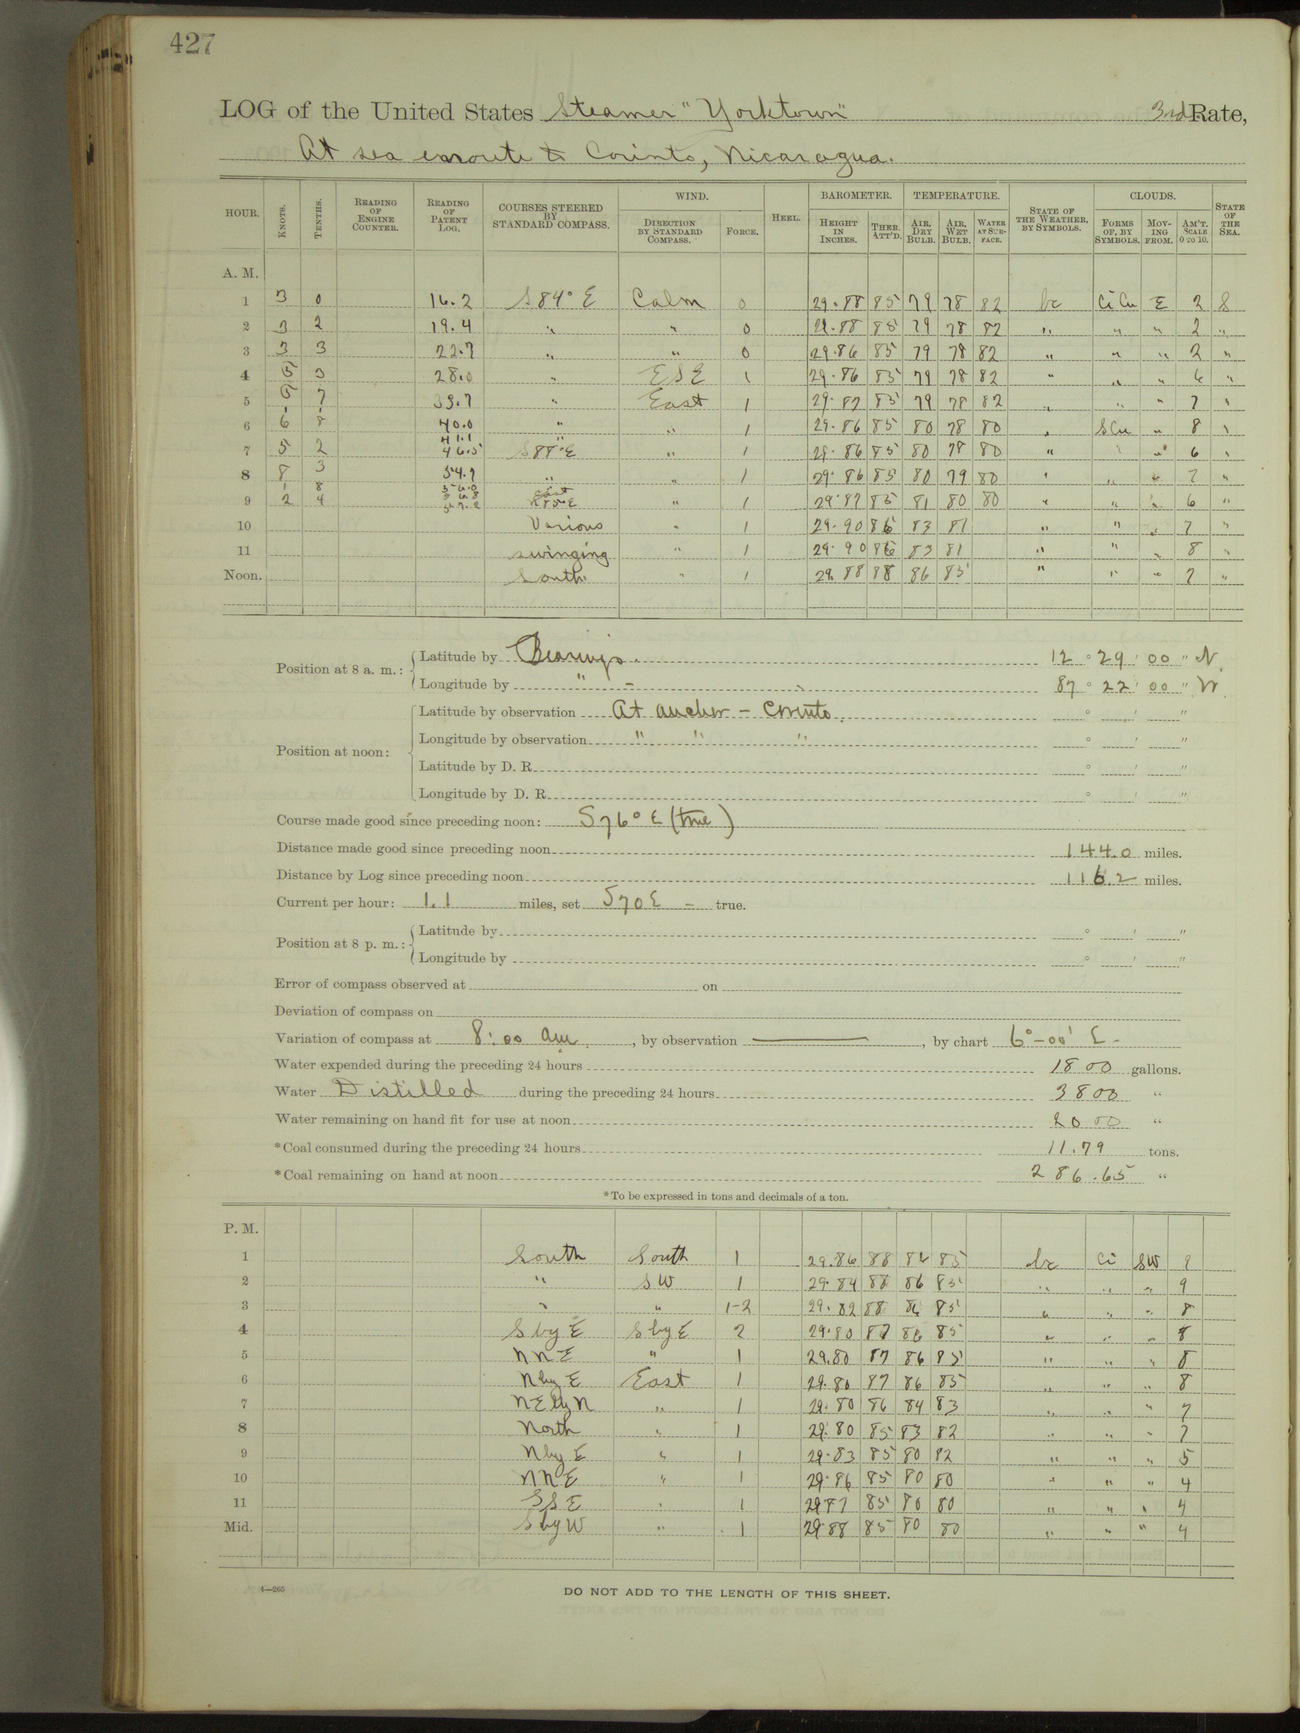 427
LOG of the United States Steamer "Yorktown" 3rd Rate,
At sea enroute to Corinto, Nicaragua.
HOUR. KNOTS. TENTHS. READING OF ENGINE COUNTER. READING OF PATENT LOG. COURSES STEERED BY STANDARD COMPASS. WIND. DIRECTION BY STANDARD COMPASS. FORCE. HEEL. BAROMETER. HEIGHT IN INCHES. THER. ATT'D. TEMPERATURE. AIR, DRY BULB. AIR, WET BULB. WATER AT SURFACE. STATE OF THE WEATHER, BY SYMBOLS. CLOUDS. FORMS OF, BY SYMBOLS. MOVING FROM. AM'T. SCALE 0 TO 10. STATE OF THE SEA.
A. M.
1 3 0 16.2 S 84° E Calm 0 29.88 85 79 78 82 bc Ci Cu E 2 S
2 3 2 19.4 " " 0 29.88 85 79 78 82 " " " 2 "
3 3 3 22.7 " " 0 29.86 85 79 78 82 " " " 2 "
4 5 3 28.0 " ESE 1 29.86 85 79 78 82 " " " 6 "
5 5 7 33.7 " East 1 29.87 85 79 78 82 " " " 7 "
6 6 40.0 " " 1 29.86 85 80 78 80 " S Cu " 8 "
41.1 "
7 5 2 46.5 S 88° E " 1 29.86 85 80 78 80 " " " 6 "
8 8 3 54.7 " " 1 29.86 85 80 79 80 " " " 7 "
1 8 56.0 East
9 2 4 " 1 29.87 85 81 80 80 " " " 6 "
10 Various " 1 29.90 86 83 81 " " " 7 "
11 swinging " 1 29.90 86 83 81 " " " 8 "
Noon. South " 1 29.88 88 86 85 " " " 7 "
Position at 8 a. m.: Latitude by Bearings. 12 ° 29 ' 00 " N.
Longitude by " 87 ° 22 ' 00 " W.
Position at noon: Latitude by observation At anchor - Corinto. ° ' "
Longitude by observation " " " ° ' "
Latitude by D. R. ° ' "
Longitude by D. R. ° ' "
Course made good since preceding noon: S 76° E (true)
Distance made good since preceding noon 144.0 miles.
Distance by Log since preceding noon 116.2 miles.
Current per hour: 1.1 miles, set S 70 E - true.
Position at 8 p. m.: Latitude by ° ' "
Longitude by ° ' "
Error of compass observed at on
Deviation of compass on
Variation of compass at 8:00 am., by observation ——, by chart 6°-00' E.
Water expended during the preceding 24 hours 1800 gallons.
Water Distilled during the preceding 24 hours 3800 "
Water remaining on hand fit for use at noon 00 "
*Coal consumed during the preceding 24 hours 11.79 tons.
*Coal remaining on hand at noon 286.65 "
*To be expressed in tons and decimals of a ton.
P. M.
1 South South 1 29.86 88 86 85 bc Ci SW 9
2 " SW 1 29.84 88 86 85 " " " 9
3 " " 1-2 29.82 88 86 85 " " " 8
4 S by E S by E 2 29.80 87 86 85 " " " 8
5 NNE " 1 29.80 87 86 85 " " " 8
6 N by E East 1 29.80 87 86 85 " " " 8
7 NE by N " 1 29.80 86 84 83 " " " 7
8 North " 1 29.80 85 83 82 " " " 7
9 N by E " 1 29.83 85 80 82 " " " 5
10 NNE " 1 29.86 85 80 80 " " " 4
11 SSE " 1 29.87 85 80 80 " " " 4
Mid. S by W " 1 29.88 85 80 80 " " " 4
4—265
DO NOT ADD TO THE LENGTH OF THIS SHEET.